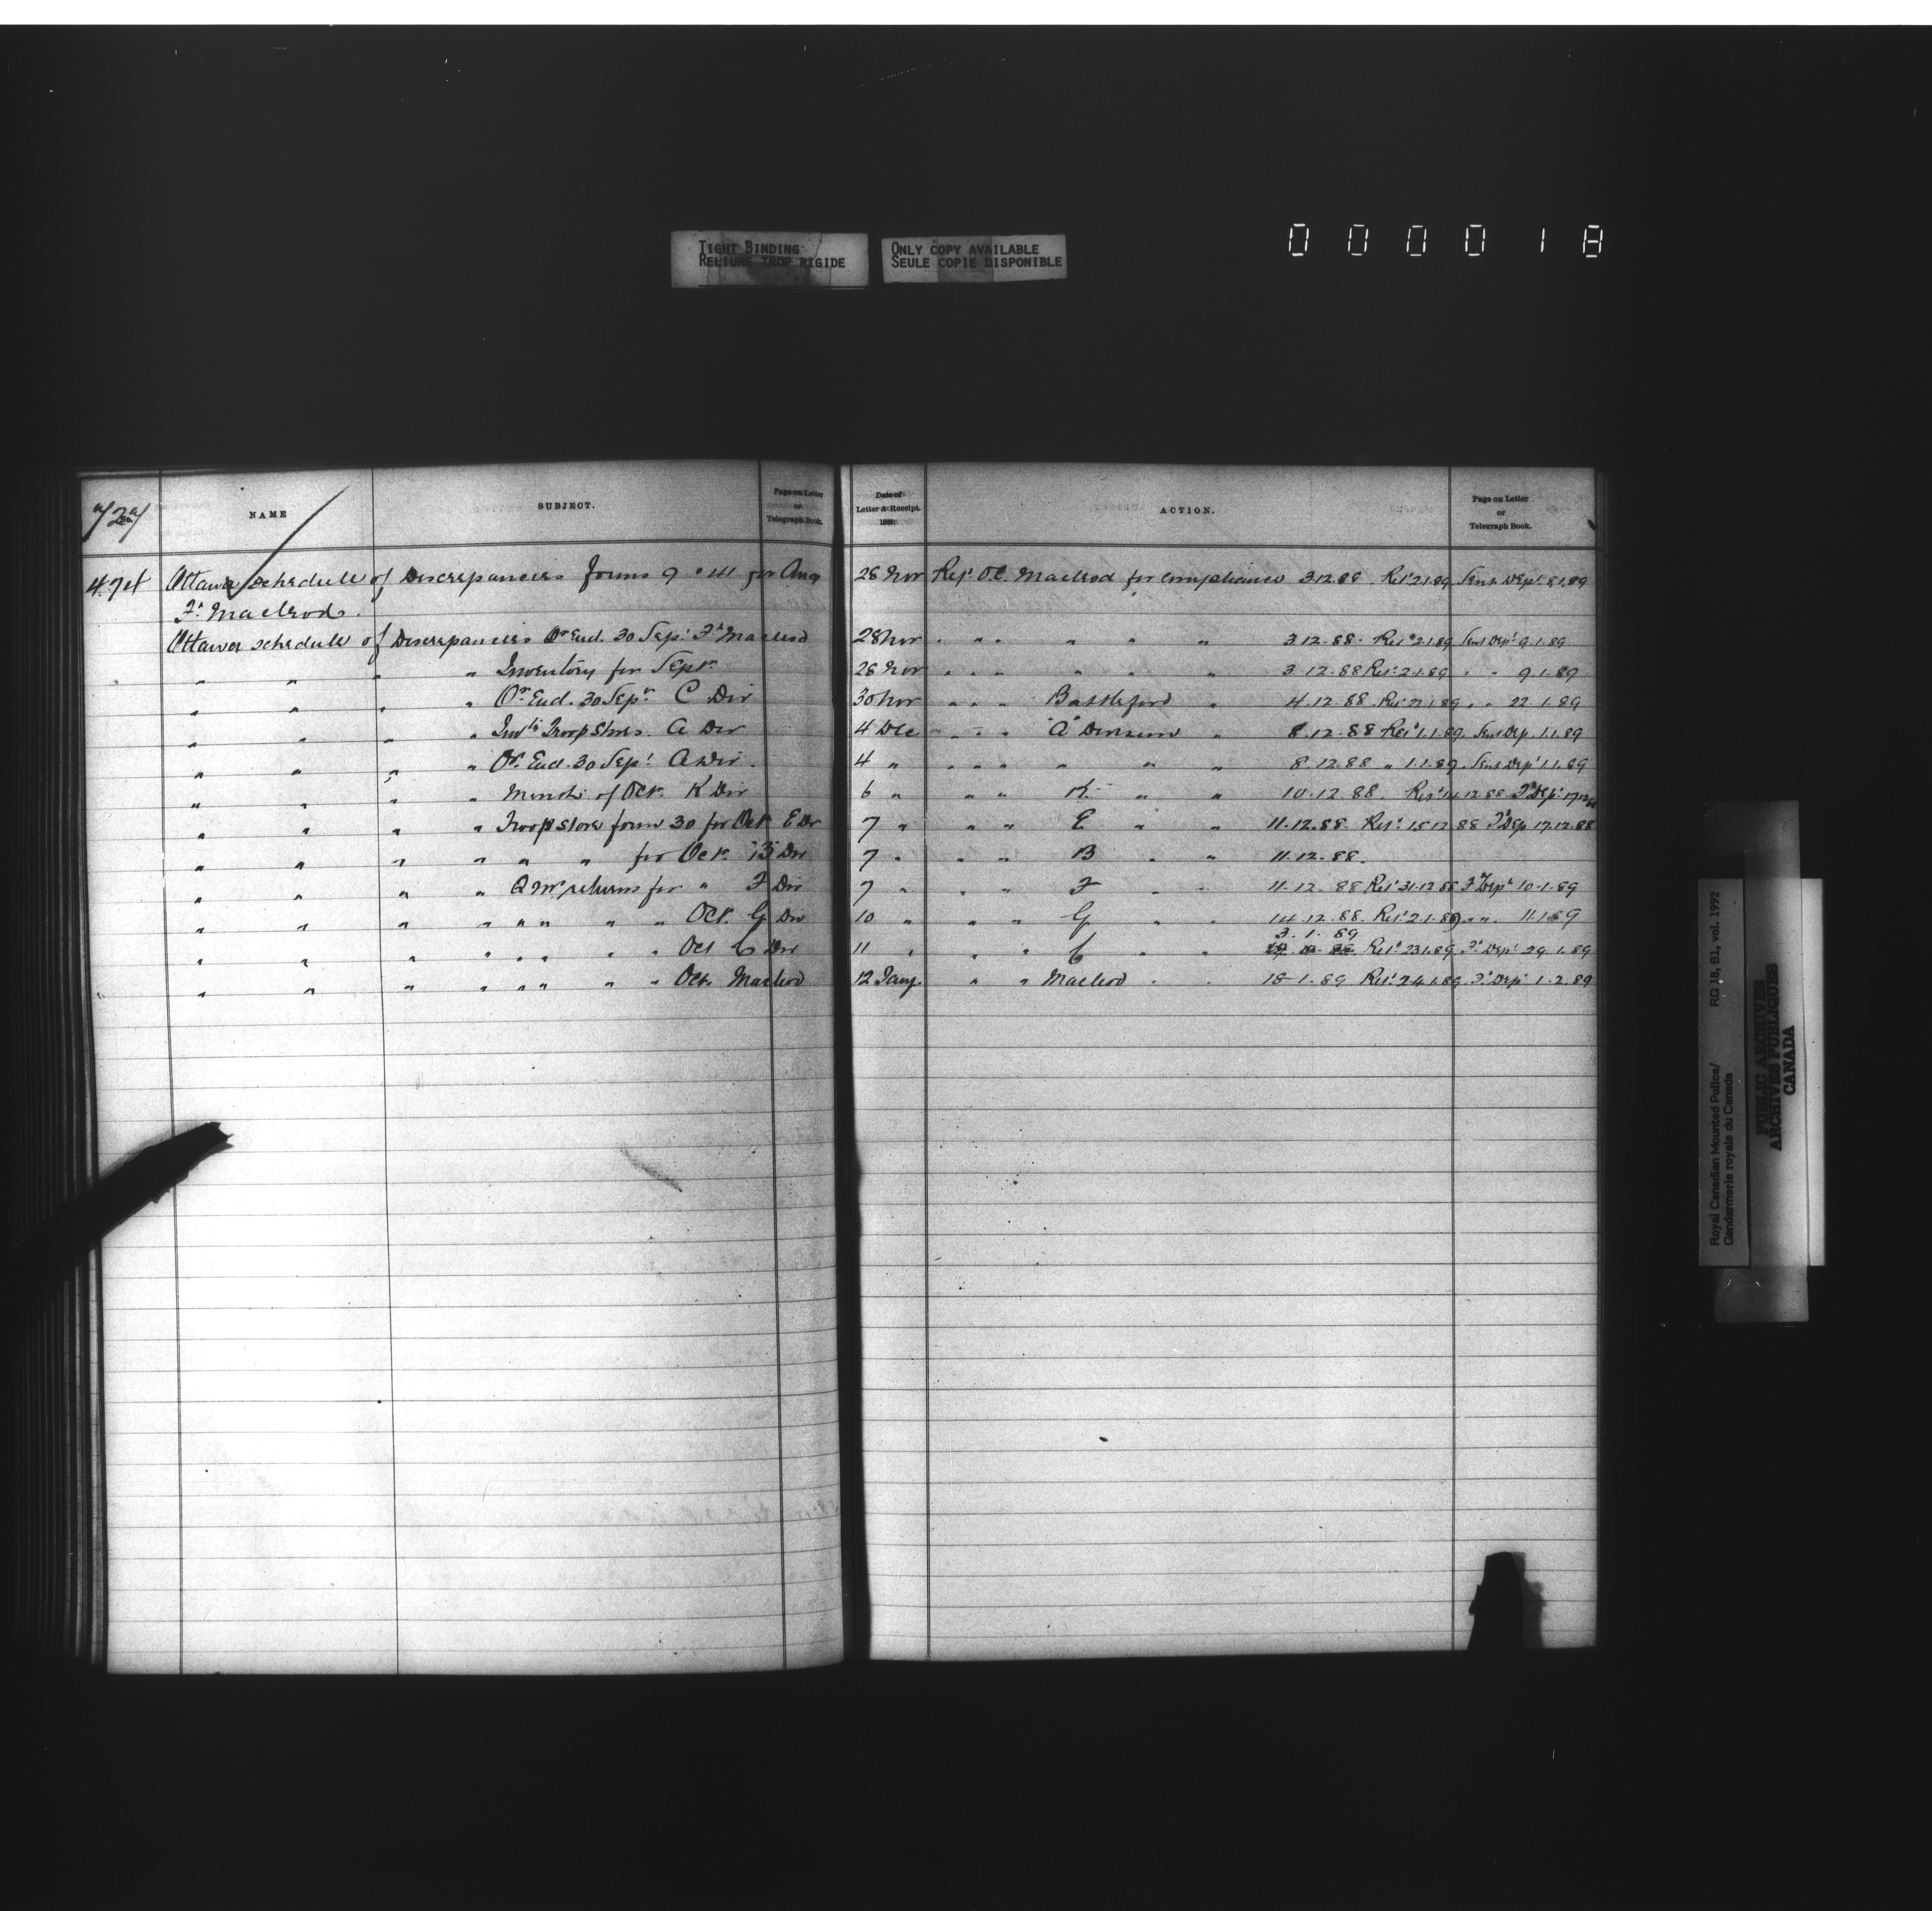 TIGHT BINDING
RELIURE TROP RIGIDE
ONLY COPY AVAILABLE
SEULE COPIE DISPONIBLE
000018
727 NAME SUBJECT. Page on Letter or Telegraph Book. Date of Letter & Receipt. 188 ACTION. Page on Letter or Telegraph Book.
Ottawa schedule of Discrepancies forms 9 " 41 for Aug 28 Nov Ref^d O.C. Macleod for compliance 3.12.88 Ret^d 2.1.89 Sent Dep^t 8.1.89
F^t Macleod.
Ottawa schedule of Discrepancies Q^r End. 30 Sep^t F^t Macleod 28 Nov " " " " " " 3.12.88. Ret^d 2.1.89 Sent Dep^t 9.1.89
" " " " Inventory for Sept^r. 28 Nov " " " " " " 3.12.88 Ret^d 2.1.89 " " 9.1.89
" " " " Q^r End. 30 Sep^r C Div 30 Nov " " " Battleford " 4.12.88 Ret^d 22.1.89
" " " " Troop Stores. A Div 4 Dec " " " "A" Division " 8.12.88 Ret^d 1.1.89. Sent Dep. 1.1.89
" " " " Q^r End. 30 Sep^t A Div. 4 " " " " " " " 8.12.88 " 1.1.89. Sent Dep^t 1.1.89
" " " " Month of Oct. K Div 6 " " " K " " 10.12.88. Ret^d 14.12.88 F^d Dep^t 17.12.88
" " " " Troop Store form 30 for Oct E Div 7 " " " E " " 11.12.88 Ret^d 15.12.88 F^d Dep 17.12.88
" " " " " " for Oct. B Div 7 " " " B " " 11.12.88.
" " " " Q M^r returns for " F Div 7 " " " F " " 11.12.88 Ret^d 31.12.88 F^d Dep^t 10.1.89
" " " " " " " " Oct. G Div 10 " " " G " " 14.12.88. Ret^d 2.1.89 " " 11.1.89
3.1.89
" " " " " " " " Oct C Div 11 " " " C " " Ret^d 23.1.89 F^d Dep^t 29.1.89
" " " " " " " " Oct. Macleod 12 Jany. " " Macleod " " 18.1.89 Ret^d 24.1.89. F^d Dep^t 1.2.89
Royal Canadian Mounted Police/ RG 18, B1, vol. 1992
Gendarmerie royale du Canada
PUBLIC ARCHIVES
ARCHIVES PUBLIQUES
CANADA